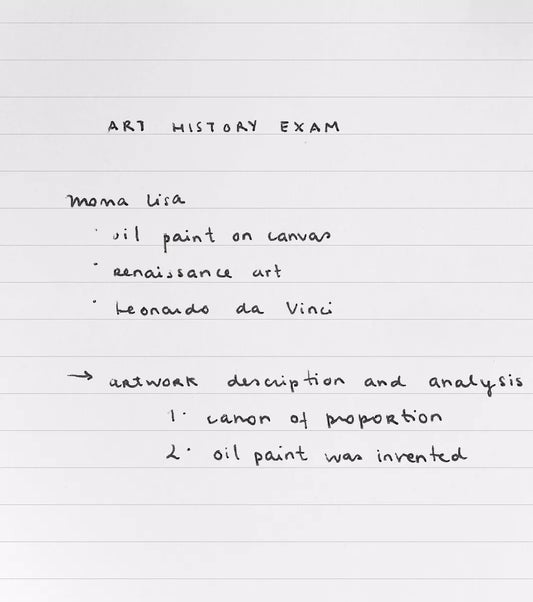 ART HISTORY EXAM
Mona Lisa
· oil paint on canvas
· Renaissance art
· Leonardo da Vinci
→ artwork description and analysis
1. canon of proportion
2. oil paint was invented